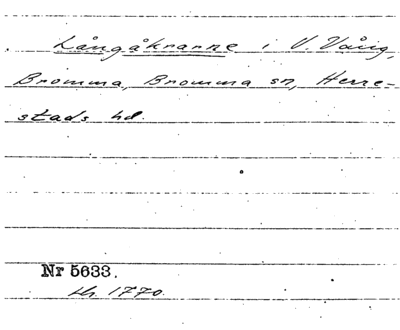 Långåkranne i V. Vång,
Bromma, Bromma sn, Herre-
stads hd.
Nr 5633.
kr. 1770.